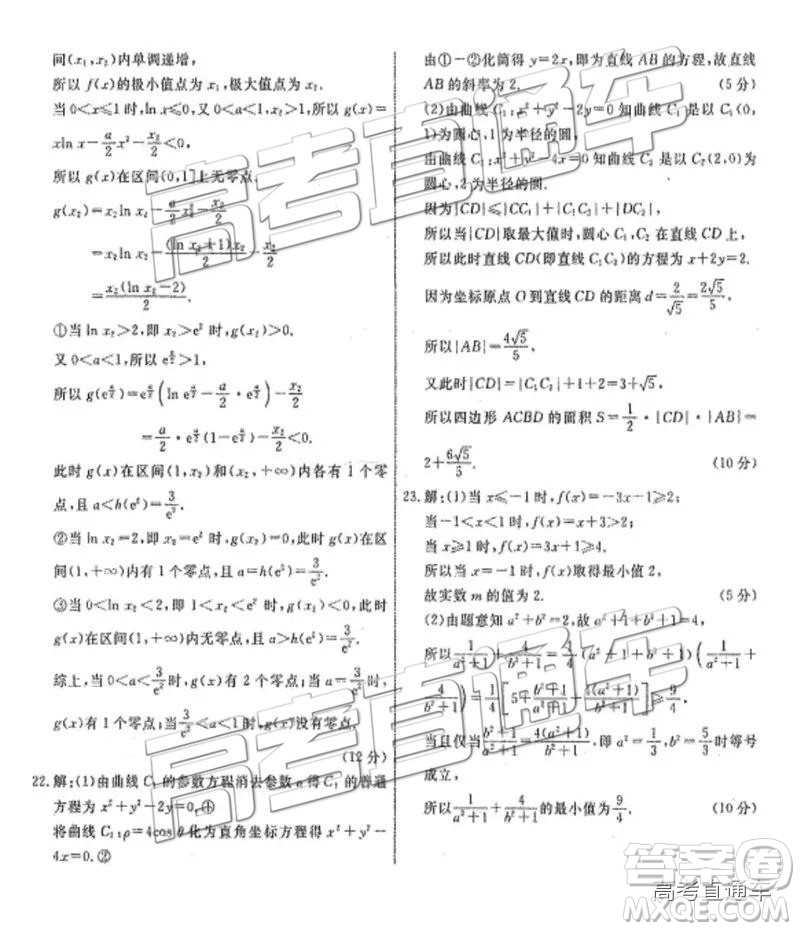 间(x₁,x₂)内单调递增,
所以 f(x)的极小值点为 x₁,极大值点为 x₂.
当 0<x≤1 时,ln x≤0,又 0<a<1,x₂>1,所以 g(x)=
xln x-a/2 x²-x₂/2<0,
所以 g(x)在区间(0,1]上无零点.
g(x₂)=x₂ln x₂-a/2 x₂²-x₂/2
=x₂ln x₂-(ln x₂+1)x₂/2-x₂/2
=x₂(ln x₂-2)/2.
①当 ln x₂>2,即 x₂>e² 时,g(x₂)>0.
所以 g(
=
此时 g(x)在区间(1,x₂)和(x₂,+∞)内各有 1 个零
点,且 a<h(e²)=3/e².
②当 ln x₂=2,即 x₂=e² 时,g(x₂)=0,此时 g(x)在区
间(1,+∞)内有 1 个零点,a=h(e²)=3/e².
③当 0<ln x₂<2,即 1<x₂<e² 时,g(x₂)<0,此时
g(x)在区间(1,+∞)内无零点,且 a>h(e²)=3/e².
综上,当 0<a<3/e² 时,g(x)有 2 个零点;当 a=3/e² 时,
g(x)有 1 个零点;当 3/e²<a<1 时,g(x)没有零点.
(12 分)
22.解:(1)由曲线 C₁ 的参数方程消去参数 α 得 C₁ 的普通
方程为 x²+y²-2y=0.①
将曲线 C₂:ρ=4cos θ化为直角坐标方程得 x²+y²-
4x=0.②
由①-②化简得 y=2x,即为直线 AB 的方程,故直线
AB 的斜率为 2. (5 分)
(2)由曲线 C₁:x²+y²-2y=0 知曲线 C₁ 是以 C₁(0,
1)为圆心,1 为半径的圆,
由曲线 C₂:x²+y²-4x=0 知曲线 C₂ 是以 C₂(2,0)为
圆心,2 为半径的圆.
因为|CD|≤|CC₁|+|C₁C₂|+|DC₂|,
所以当|CD|取最大值时,圆心 C₁,C₂ 在直线 CD 上,
所以此时直线 CD(即直线 C₁C₂)的方程为 x+2y=2.
因为坐标原点 O 到直线 CD 的距离 d=2/√5=2√5/5,
所以|AB|=4√5/5,
又此时|CD|=|C₁C₂|+1+2=3+√5,
所以四边形 ACBD 的面积 S=1/2·|CD|·|AB|=
2+6√5/5. (10 分)
23.解:(1)当 x≤-1 时,f(x)=-3x-1≥2;
当-1<x<1 时,f(x)=x+3>2;
当 x≥1 时,f(x)=3x+1≥4.
所以当 x=-1 时,f(x)取得最小值 2,
故实数 m 的值为 2. (5 分)
(2)由题意知 a²+b²=2,故 a²+1+b²+1=4,
所以 1/(a²+1)+4/(b²+1)=1/4(a²+1+b²+1)(1/(a²+1)+
4/(b²+1))=1/4[5+(b²+1)/(a²+1)+4(a²+1)/(b²+1)]≥9/4.
当且仅当(b²+1)/(a²+1)=4(a²+1)/(b²+1),即 a²=1/3,b²=5/3 时等号
成立,
所以 1/(a²+1)+4/(b²+1)的最小值为 9/4. (10 分)
高考直通车
高考直通车
答案卷
高考直通车
MXQE.COM